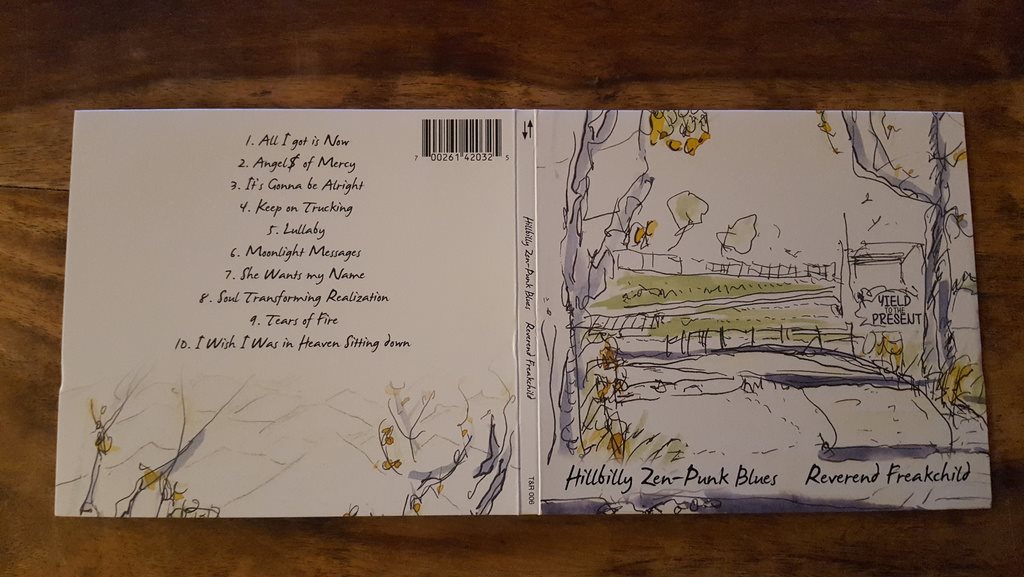 1. All I got is Now
2. Angel$ of Mercy
3. It's Gonna be Alright
4. Keep on Trucking
5. Lullaby
6. Moonlight Messages
7. She Wants my Name
8. Soul Transforming Realization
9. Tears of Fire
10. I Wish I Was in Heaven Sitting down
7 00261 42032 5
Hillbilly Zen-Punk Blues Reverend Freakchild
T&R 006
YIELD
TO THE
PRESENT
Hillbilly Zen-Punk Blues Reverend Freakchild